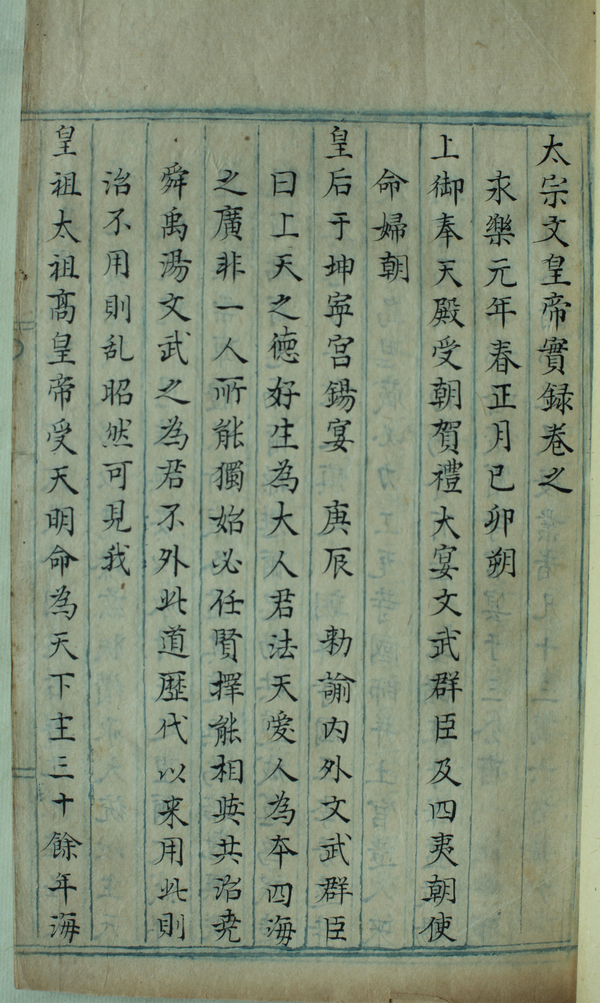 太宗文皇帝實録卷之
永樂元年春正月已卯朔
上御奉天殿受朝賀禮大宴文武群臣及四夷朝使
命婦朝
皇后于坤寜宮錫宴　庚辰　勅諭内外文武群臣
曰上天之德好生為大人君法天愛人為本四海
之廣非一人所能獨始必任賢擇能相與共治堯
舜禹湯文武之為君不外此道歴代以来用此則
治不用則乱昭然可見我
皇祖太祖髙皇帝受天明命為天下主三十餘年海